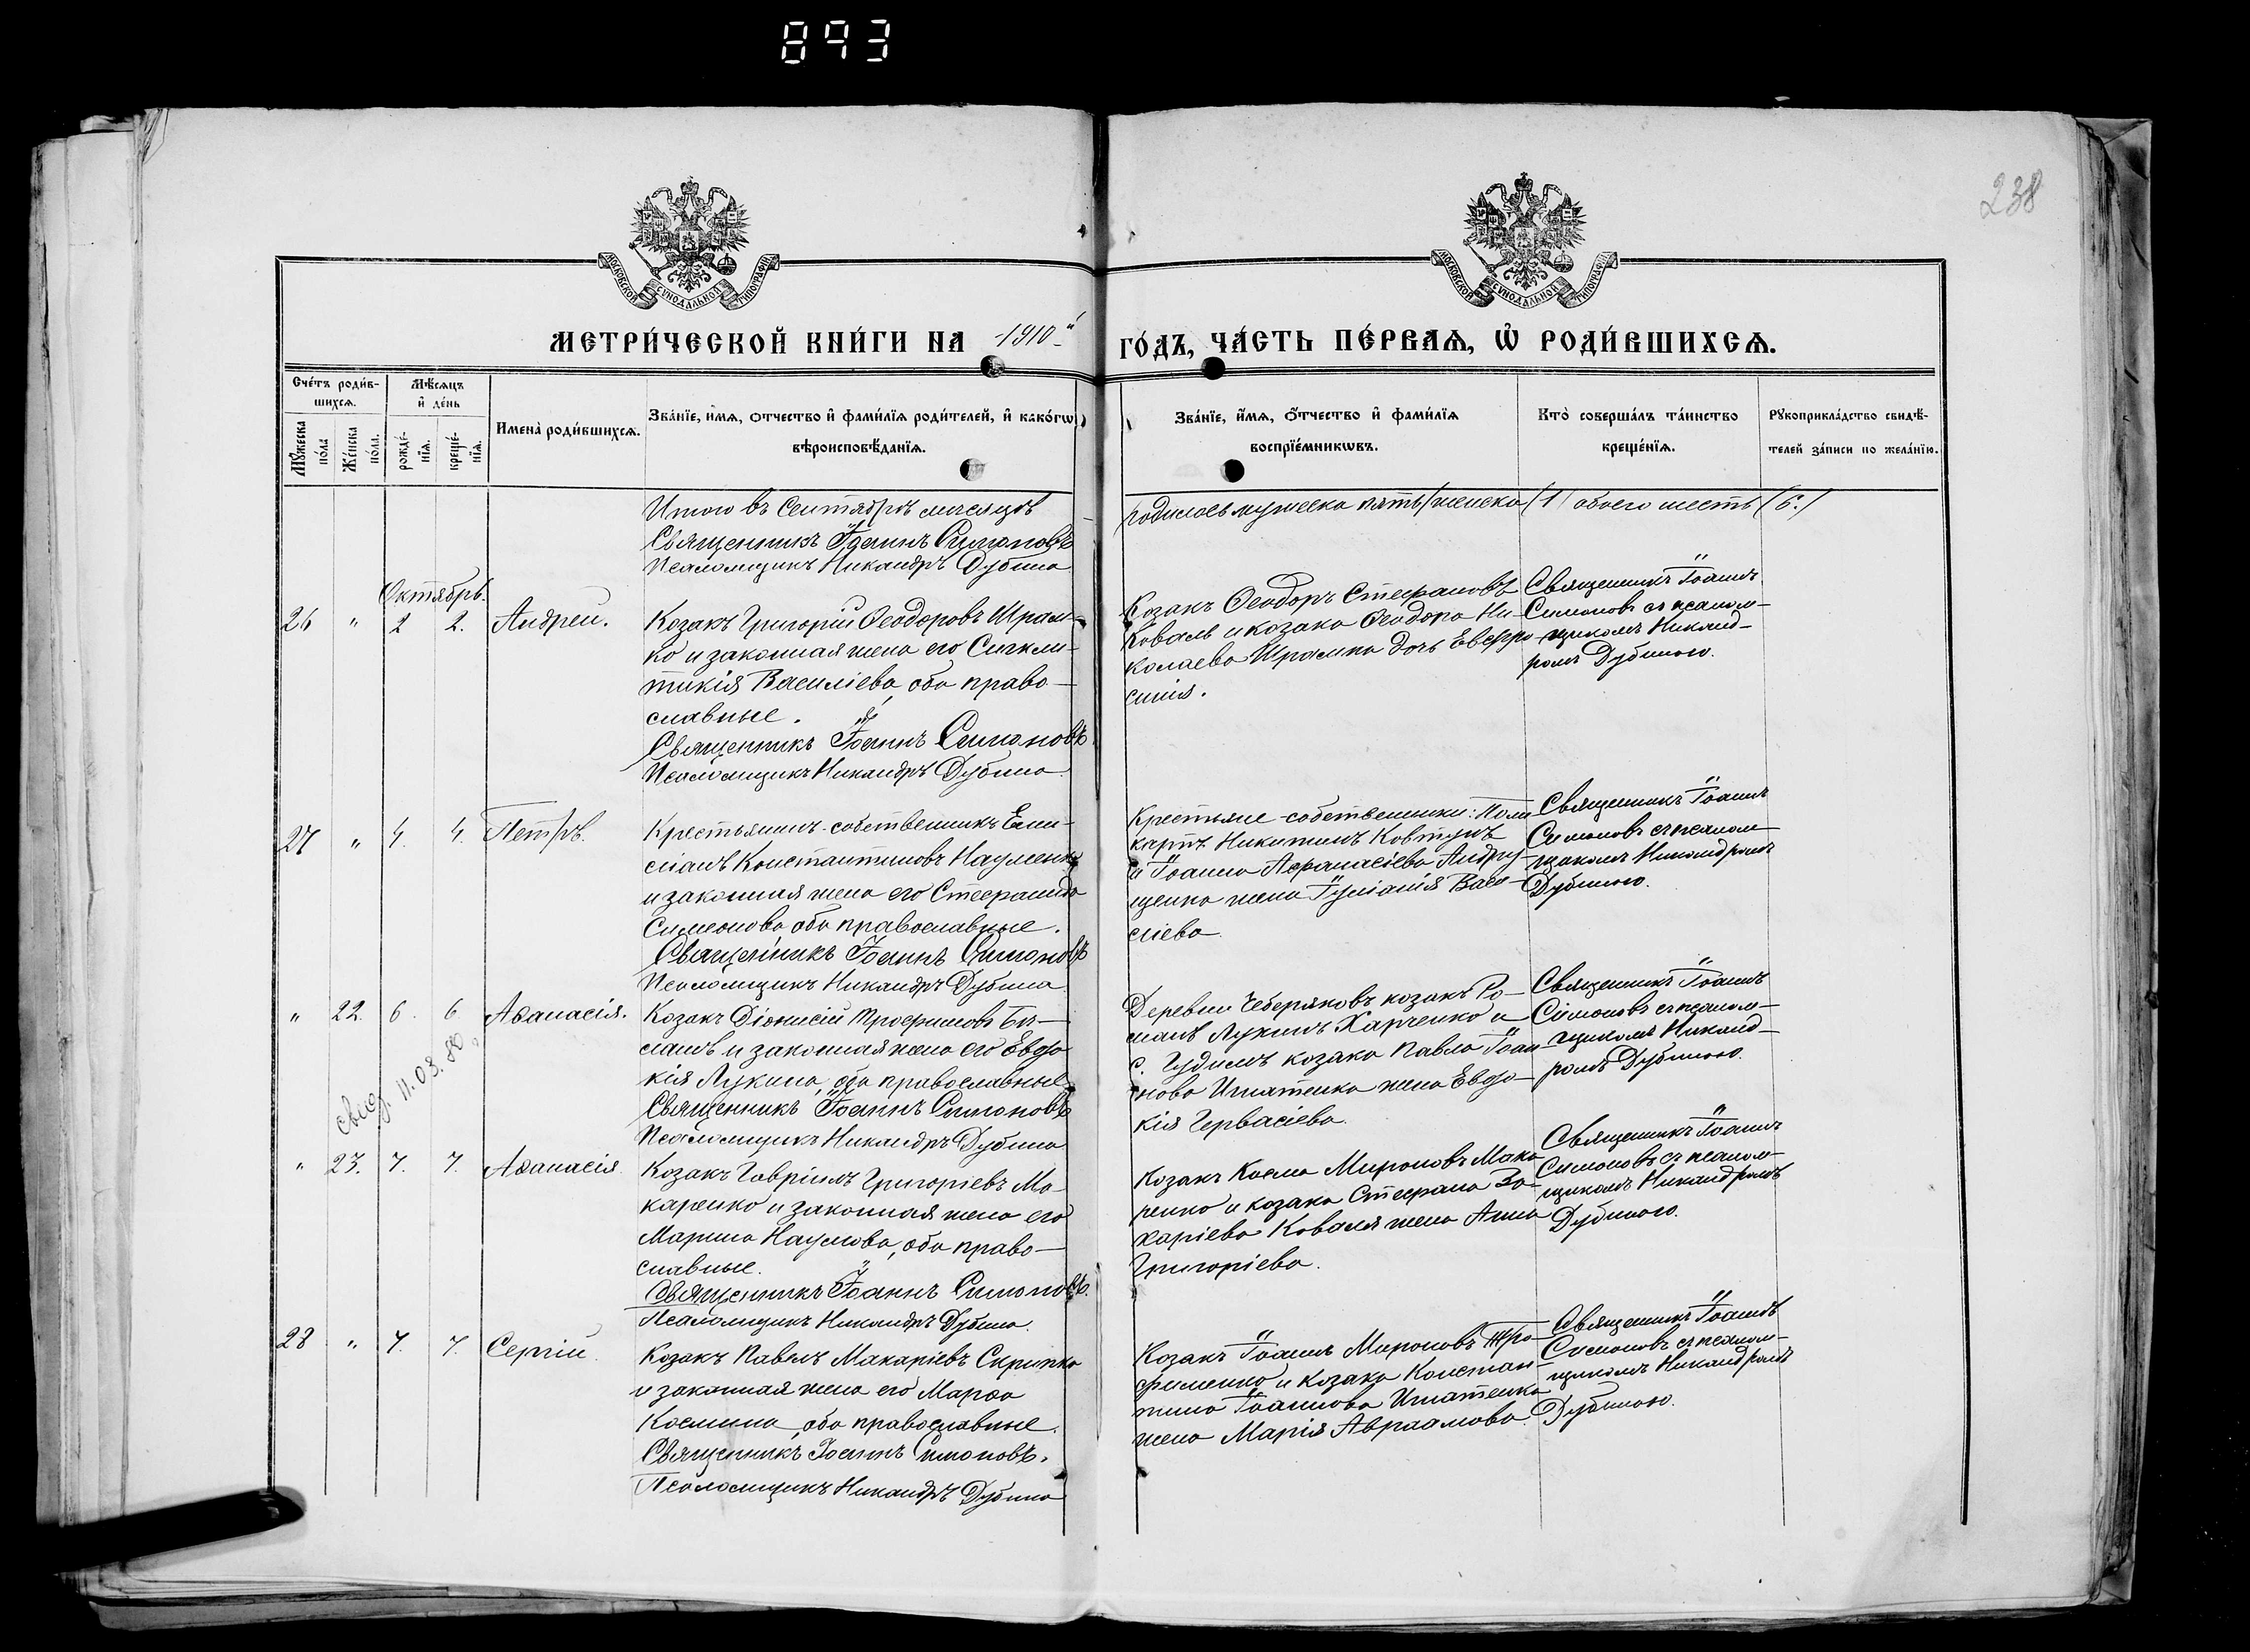 893
238
МОСКОВСКОЙ СѴНОДАЛЬНОЙ ТИПОГРАФІИ
МОСКОВСКОЙ СѴНОДАЛЬНОЙ ТИПОГРАФІИ
МЕТРИ́ЧЕСКОЙ КНИ́ГИ НА 1910-й ГО́ДЪ, ЧА́СТЬ ПЕ́РВАѦ, Ѡ҆ РОДИ́ВШИХСѦ.
Сче́тъ роди́в-
шихсѧ.
Мѣ́сѧцъ
и҆ де́нь
Мꙋ́жеска
по́ла
Же́нска
по́ла.
рожде́-
нїѧ.
креще́-
нїѧ.
Имена̀ роди́вшихсѧ.
Зва́нїе, и҆́мѧ, ѻ҆́тчество и҆ фами́лїѧ роди́телей, и҆ како́гѡ
вѣроисповѣ́данїѧ.
Зва́нїе, и҆́мѧ, ѻ҆́тчество и҆ фами́лїѧ
воспрїе́мникѡвъ.
Кто̀ соверша́лъ та́инство
креще́нїѧ.
Рꙋкоприкла́дство свидѣ́-
телей за́писи по жела́нїю.
Итого въ Сентябрѣ мѣсяцѣ
родилось мужеска пять/женска (1) обоего шесть (6.)
Священникъ Іоаннъ Симоновъ
Псаломщикъ Никандръ Дубина
Октябрь.
26 " 2 2. Андрей.
Козакъ Григорій Ѳеодоровъ Шрам-
ко и законная жена его Сигкли-
тикія Василіева, оба право-
славные.
Священникъ Іоаннъ Симоновъ
Псаломщикъ Никандръ Дубина
Козакъ Ѳеодоръ Стефановъ
Коваль и козака Ѳеодора Ни-
колаева Шрамка дочь Евфро-
синія.
Священникъ Іоаннъ
Симоновъ съ псалом-
щикомъ Никанд-
ромъ Дубиною.
27 " 4. 4. Петръ.
Крестьянинъ-собственникъ Еми-
ліанъ Константиновъ Науменко
и законная жена его Стефанида
Симеонова оба православные.
Священникъ Іоаннъ Симоновъ
Псаломщикъ Никандръ Дубина
Крестьяне-собственники: Поли
карпъ Никитинъ Ковтунъ
и Іоанна Афанасіева Андру-
щенка жена Іуліанія Васи-
ліева
Священникъ Іоаннъ
Симоновъ съ псалом-
щикомъ Никандромъ
Дубиною.
" 22. 6. 6. Аѳанасія.
свид. 11.03.80
Козакъ Діонисій Трофимовъ Би-
ланъ и законная жена его Евдо
кія Лукина, оба православные
Священникъ Іоаннъ Симоновъ
Псаломщикъ Никандръ Дубина
Деревни Чеберяковъ козакъ Ро-
манъ Лукинъ Харченко и
с. Гудимъ козака Павла Іоан-
нова Игнатенка жена Евдо-
кія Гервасіева.
Священникъ Іоаннъ
Симоновъ съ псалом-
щикомъ Никанд-
ромъ Дубиною.
" 23. 7. 7. Аѳанасія.
Козакъ Гавріилъ Григоріевъ Ма-
каренко и законная жена его
Марина Наумова, оба право-
славные.
Священникъ Іоаннъ Симоновъ.
Псаломщикъ Никандръ Дубина.
Козакъ Косма Мироновъ Мака
ренко и козака Стефана За-
харіева Коваля жена Анна
Григоріева.
Священникъ Іоаннъ
Симоновъ съ псалом-
щикомъ Никандромъ
Дубиною.
28 " 7. 7. Сергій.
Козакъ Павелъ Макаріевъ Скрипка
и законная жена его Марѳа
Космина, оба православные.
Священникъ Іоаннъ Симоновъ.
Псаломщикъ Никандръ Дубина
Козакъ Іоаннъ Мироновъ Тро-
фименко и козака Констан-
тина Іоаннова Игнатенка
жена Марія Авраамова.
Священникъ Іоаннъ
Симоновъ съ псалом-
щикомъ Никандромъ
Дубиною.